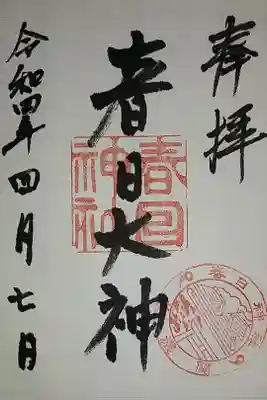 奉拝
春日大神
春日
神社
令和四年四月七日